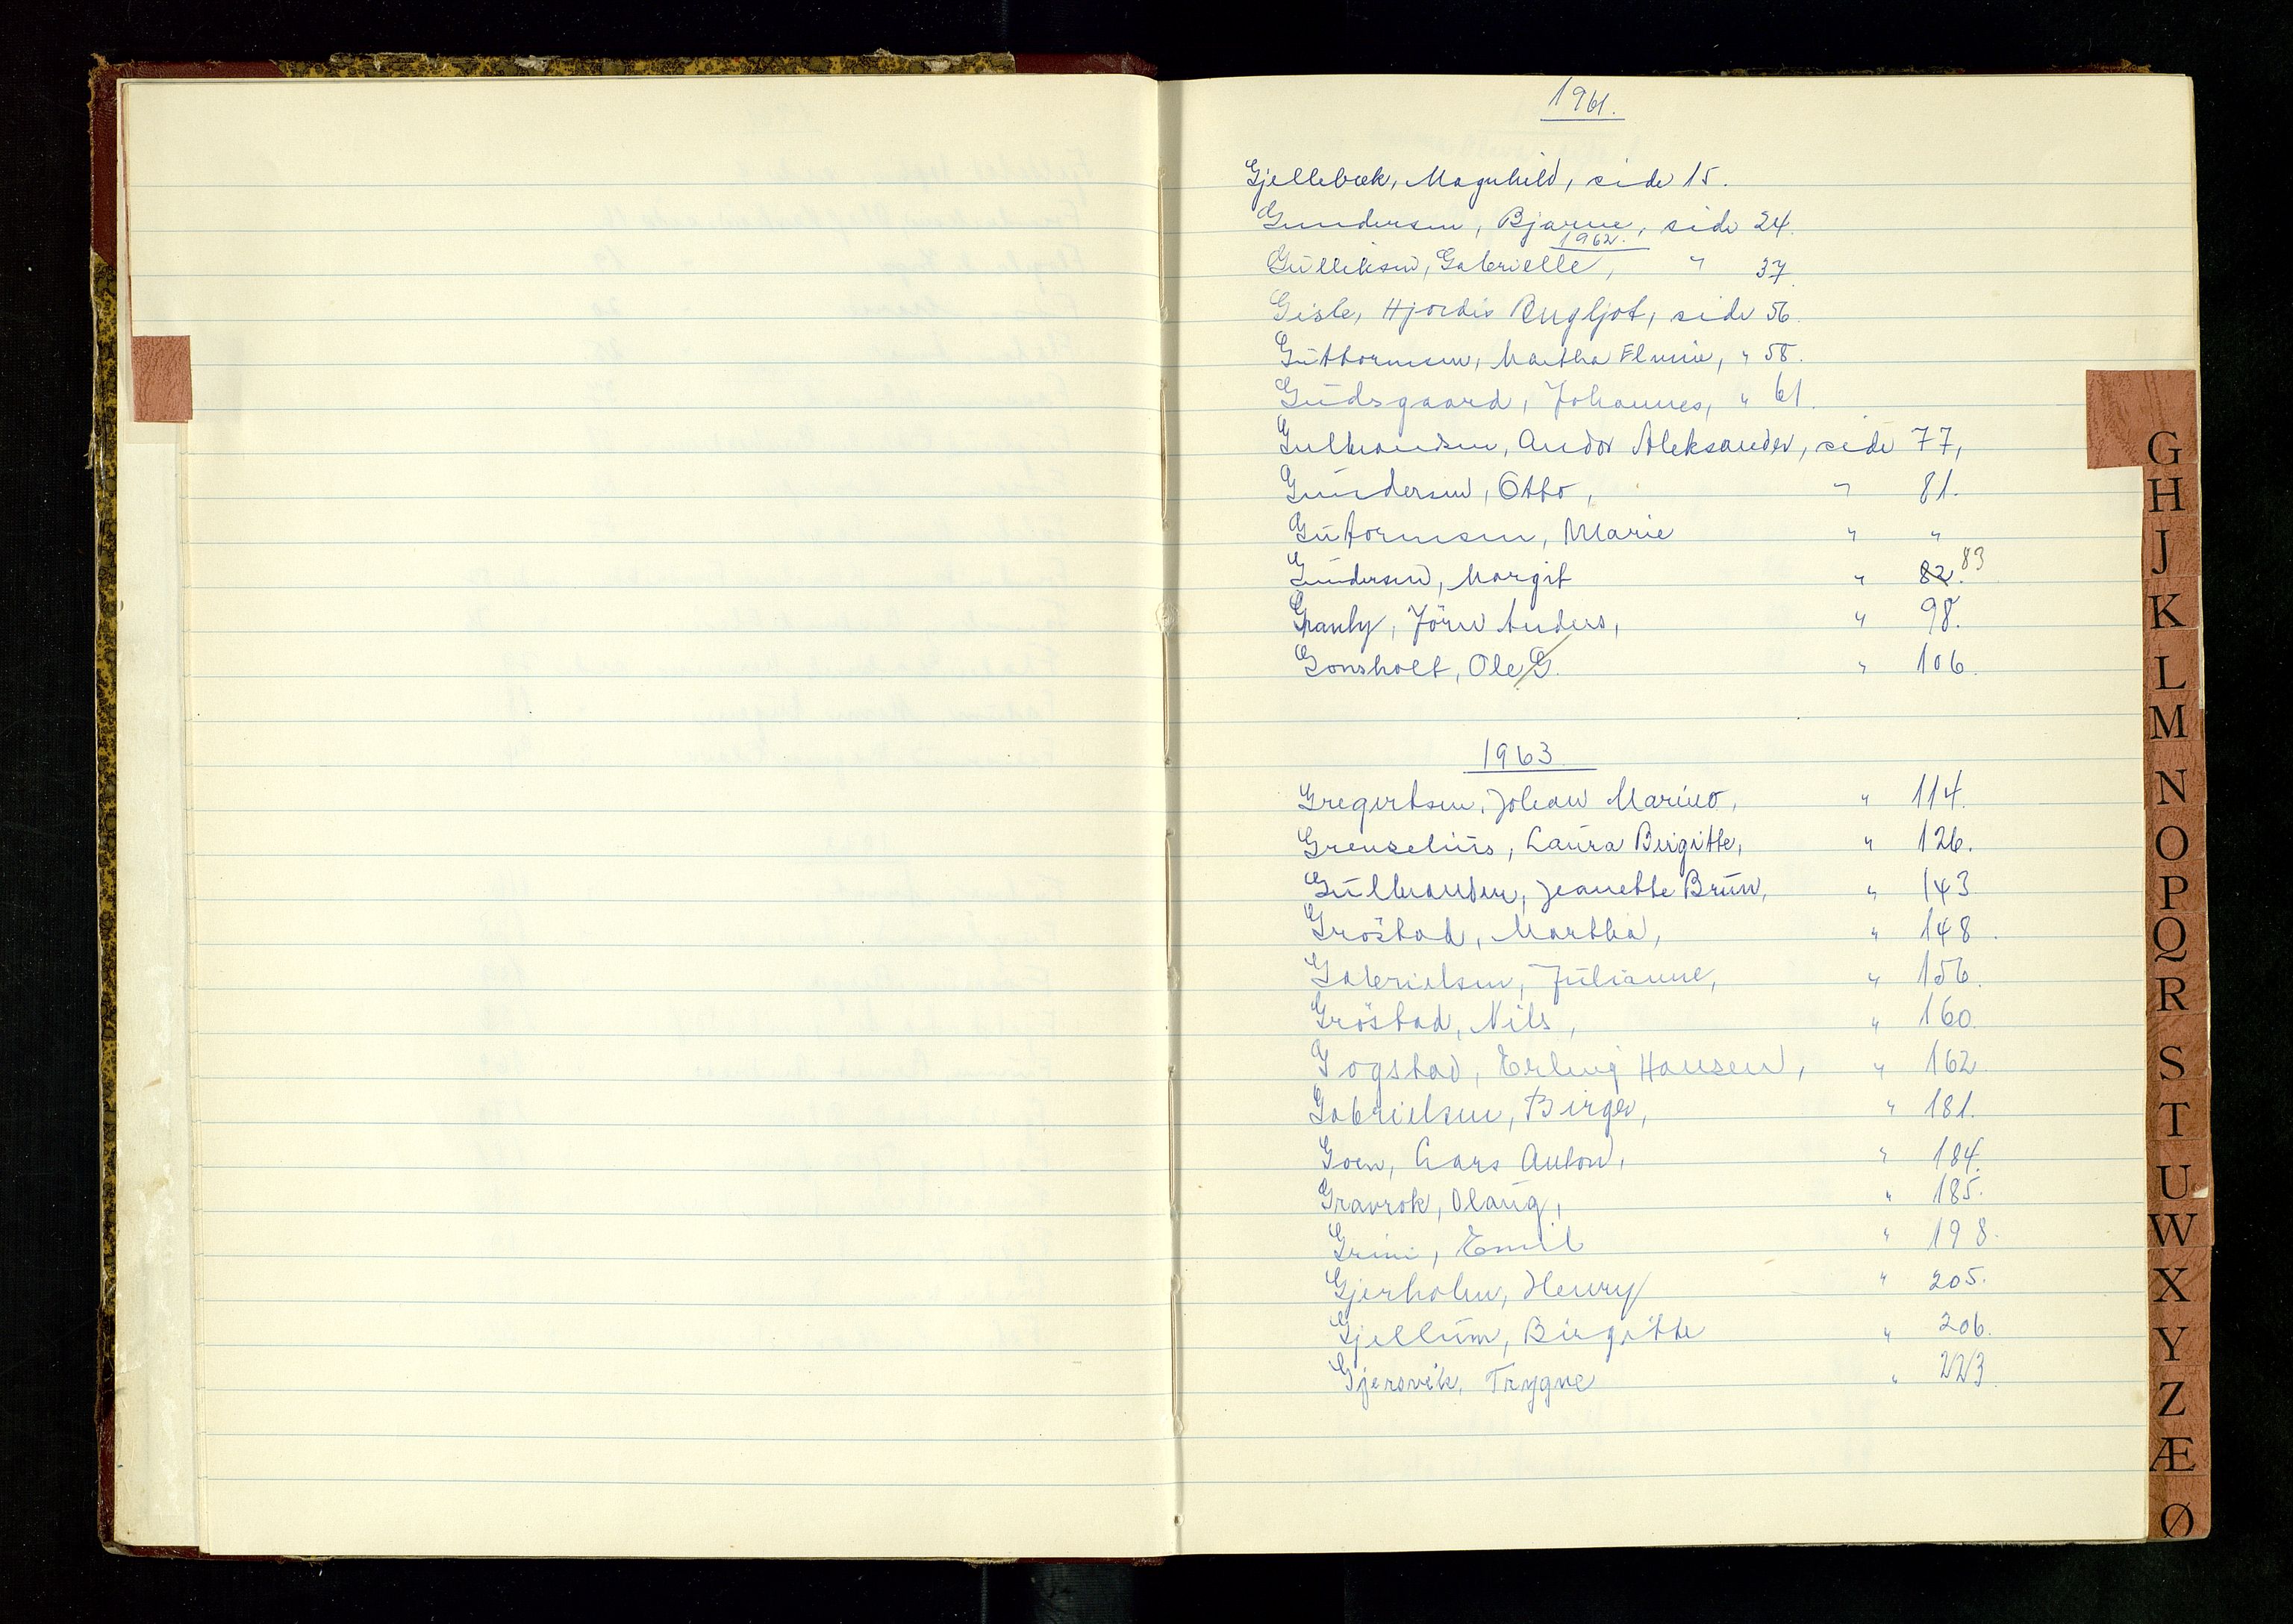 1961.
Gjellebæk, Magnhild, side 15.
Gundersen, Bjarne, side 24.
1962.
Gulliksen, Gabrielle, " 37
Gisle, Hjordis Bugljot, side 56.
Guttormsen, Martha Elvine, " 58.
Gudsgaard, Johannes, " 61.
Gulbrandsen, Andor Aleksander, side 77,
Gundersen, Otto, " 81.
Gutormsen, Marie " "
Gundersen, Margit " 82. 83
Granly, Jörn Anders, " 98.
Gonsholt, Ole G. " 106.
1963
Gregertsen, Johan Marino, " 114.
Grenselius, Laura Birgitte, " 126.
Gulbrandsen, Jeanette Brun, " 143
Gröstad, Martha, " 148.
Gabrielsen, Julianne, " 156.
Gröstad, Nils, " 160.
Gogstad, Erling Hansen, " 162
Gabrielsen, Birger, " 181.
Goen, Lars Anton, " 184.
Gravrok, Olaug, " 185.
Grini, Emil " 198.
Gjerholm, Henry " 205.
Gjellum, Birgitte " 206.
Gjersvik, Trygve " 223
G
H
J
K
L
M
N
O
P
Q
R
S
T
U
W
X
Y
Z
Æ
Ø